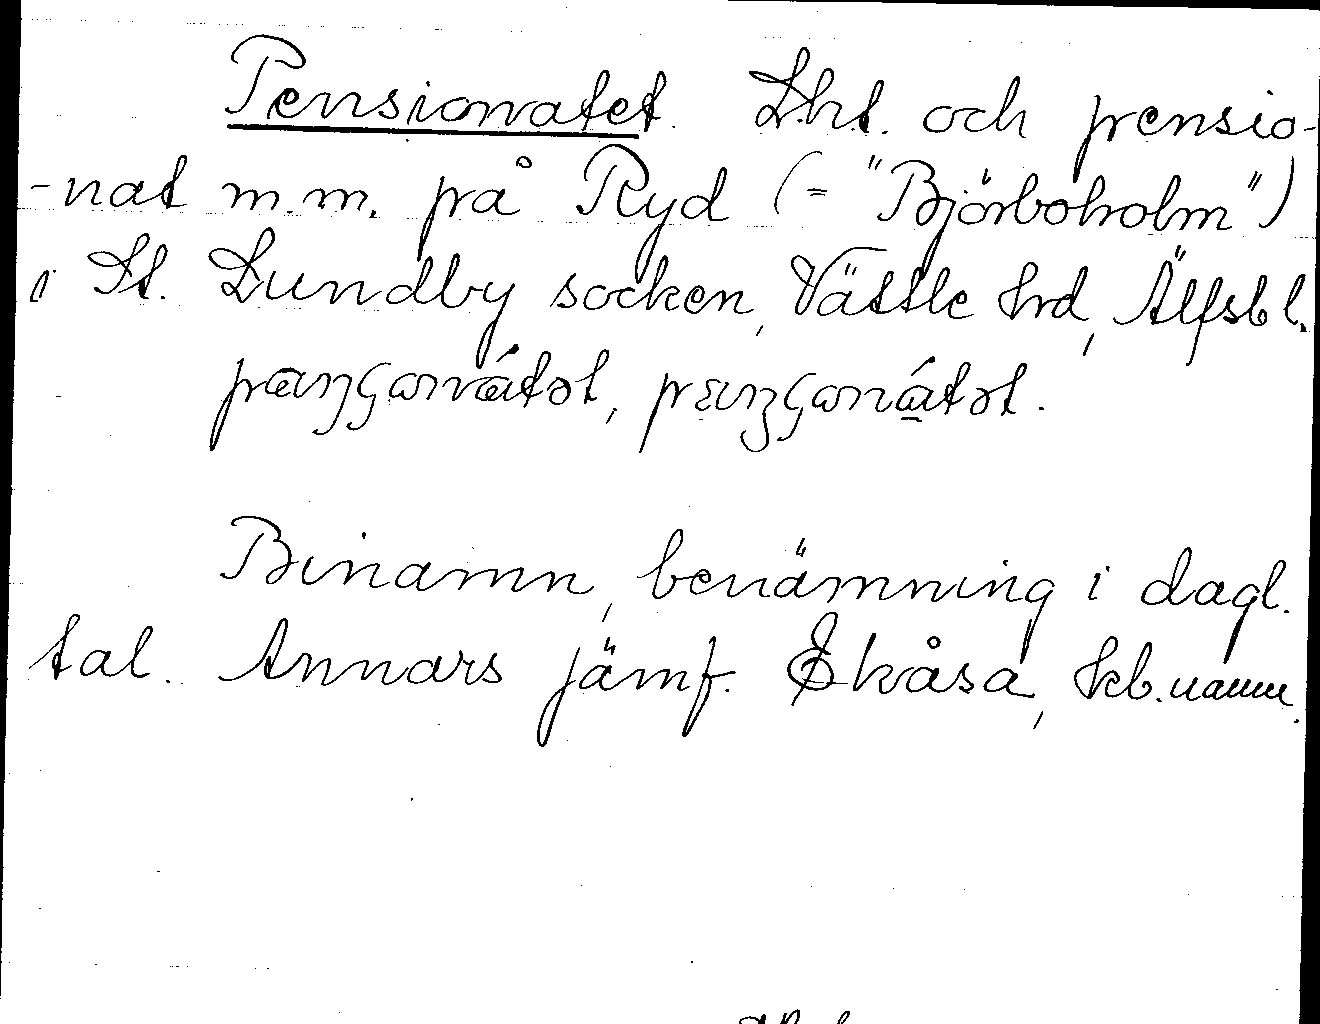 Pensionatet. Lht. och pensio-
-nat m.m. på Ryd (= "Björboholm")
i St. Lundby socken, Vättle hrd, Älfsb l.
Binamn, benämning i dagl.
tal. Annars jämf. Ekåsa, skb.namn.